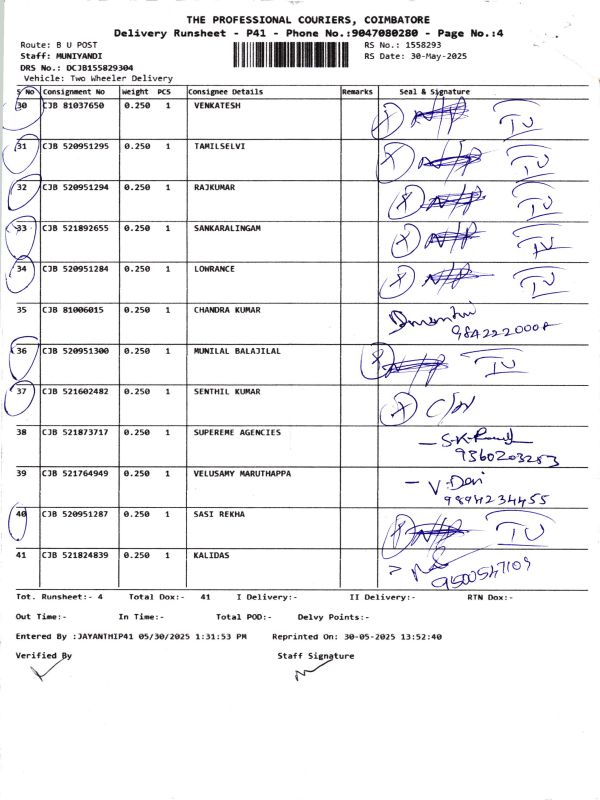 THE PROFESSIONAL COURIERS, COIMBATORE
Delivery Runsheet - P41 - Phone No.:9047080280 - Page No.:4
Route: B U POST RS No.: 1558293
Staff: MUNIYANDI RS Date: 30-May-2025
DRS No.: DCJB155829304
Vehicle: Two Wheeler Delivery
S No Consignment No Weight PCS Consignee Details Remarks Seal & Signature
30 CJB 81037650 0.250 1 VENKATESH X N/P IU
31 CJB 520951295 0.250 1 TAMILSELVI X N/P IU
32 CJB 520951294 0.250 1 RAJKUMAR X N/P IU
33 CJB 521892655 0.250 1 SANKARALINGAM X N/P IU
34 CJB 520951284 0.250 1 LOWRANCE X N/P IU
35 CJB 81006015 0.250 1 CHANDRA KUMAR
36 CJB 520951300 0.250 1 MUNILAL BALAJILAL X N/P IU
37 CJB 521602482 0.250 1 SENTHIL KUMAR X
38 CJB 521873717 0.250 1 SUPEREME AGENCIES - S.K.
9360203283
39 CJB 521764949 0.250 1 VELUSAMY MARUTHAPPA - V.Devi
9894234455
40 CJB 520951287 0.250 1 SASI REKHA X N/P IU
41 CJB 521824839 0.250 1 KALIDAS
9500547109
Tot. Runsheet:- 4 Total Dox:- 41 I Delivery:- II Delivery:- RTN Dox:-
Out Time:- In Time:- Total POD:- Delvy Points:-
Entered By :JAYANTHIP41 05/30/2025 1:31:53 PM Reprinted On: 30-05-2025 13:52:40
Verified By Staff Signature